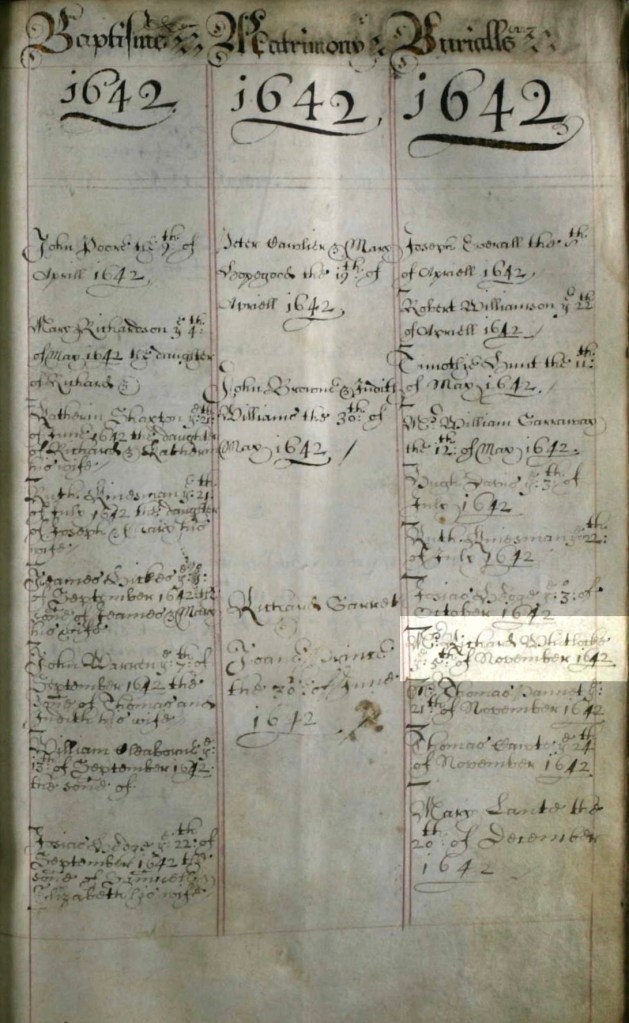 Baptisme
1642
John Poore the 9th of
Aprill 1642
Mary Richardson ye 4th
of May 1642 the daughter
of Richard &
Katherin Shaxton
of June 1642 the daughter
of Richard & Katherin
his wife
Ruth Kinesman ye 21th
of July 1642 the daughter
of Joseph & his
wife
Jeames Dickes
of September 1642 the
sone of Jeames & Mary
his wife
John Warren ye 7th of
September 1642 the
sone of Thomas and
Judith his wife
William Cleaborne ye
13th of September 1642
the sone of
Josias ye 22th of
September 1642 the
sone of
Elizabeth his wife
Matrimony
1642
Peter & Mary
Hopegood the 19th of
Apriell 1642
John Browne & Judith
Williams the 30th of
May 1642
Richard Garret
Joane Prince
the 30th of June
1642
Burialls
1642
Joseph Everall the
of Apriell 1642
Robert Williamson ye 22th
of Apriell 1642
Timothie Hunt the 11th
of May 1642
Mr William Garraway
the 12th of May 1642
Hugh ye 3th of
July 1642
Ruth Kinesman 22th
of July 1642
Josias ye 3th of
October 1642
Mr Richard Whitlocke
ye 5th of November 1642
Mr Thomas ye
21th of November 1642
Thomas ye 24th
of November 1642
Mary Lante the
20th of December
1642